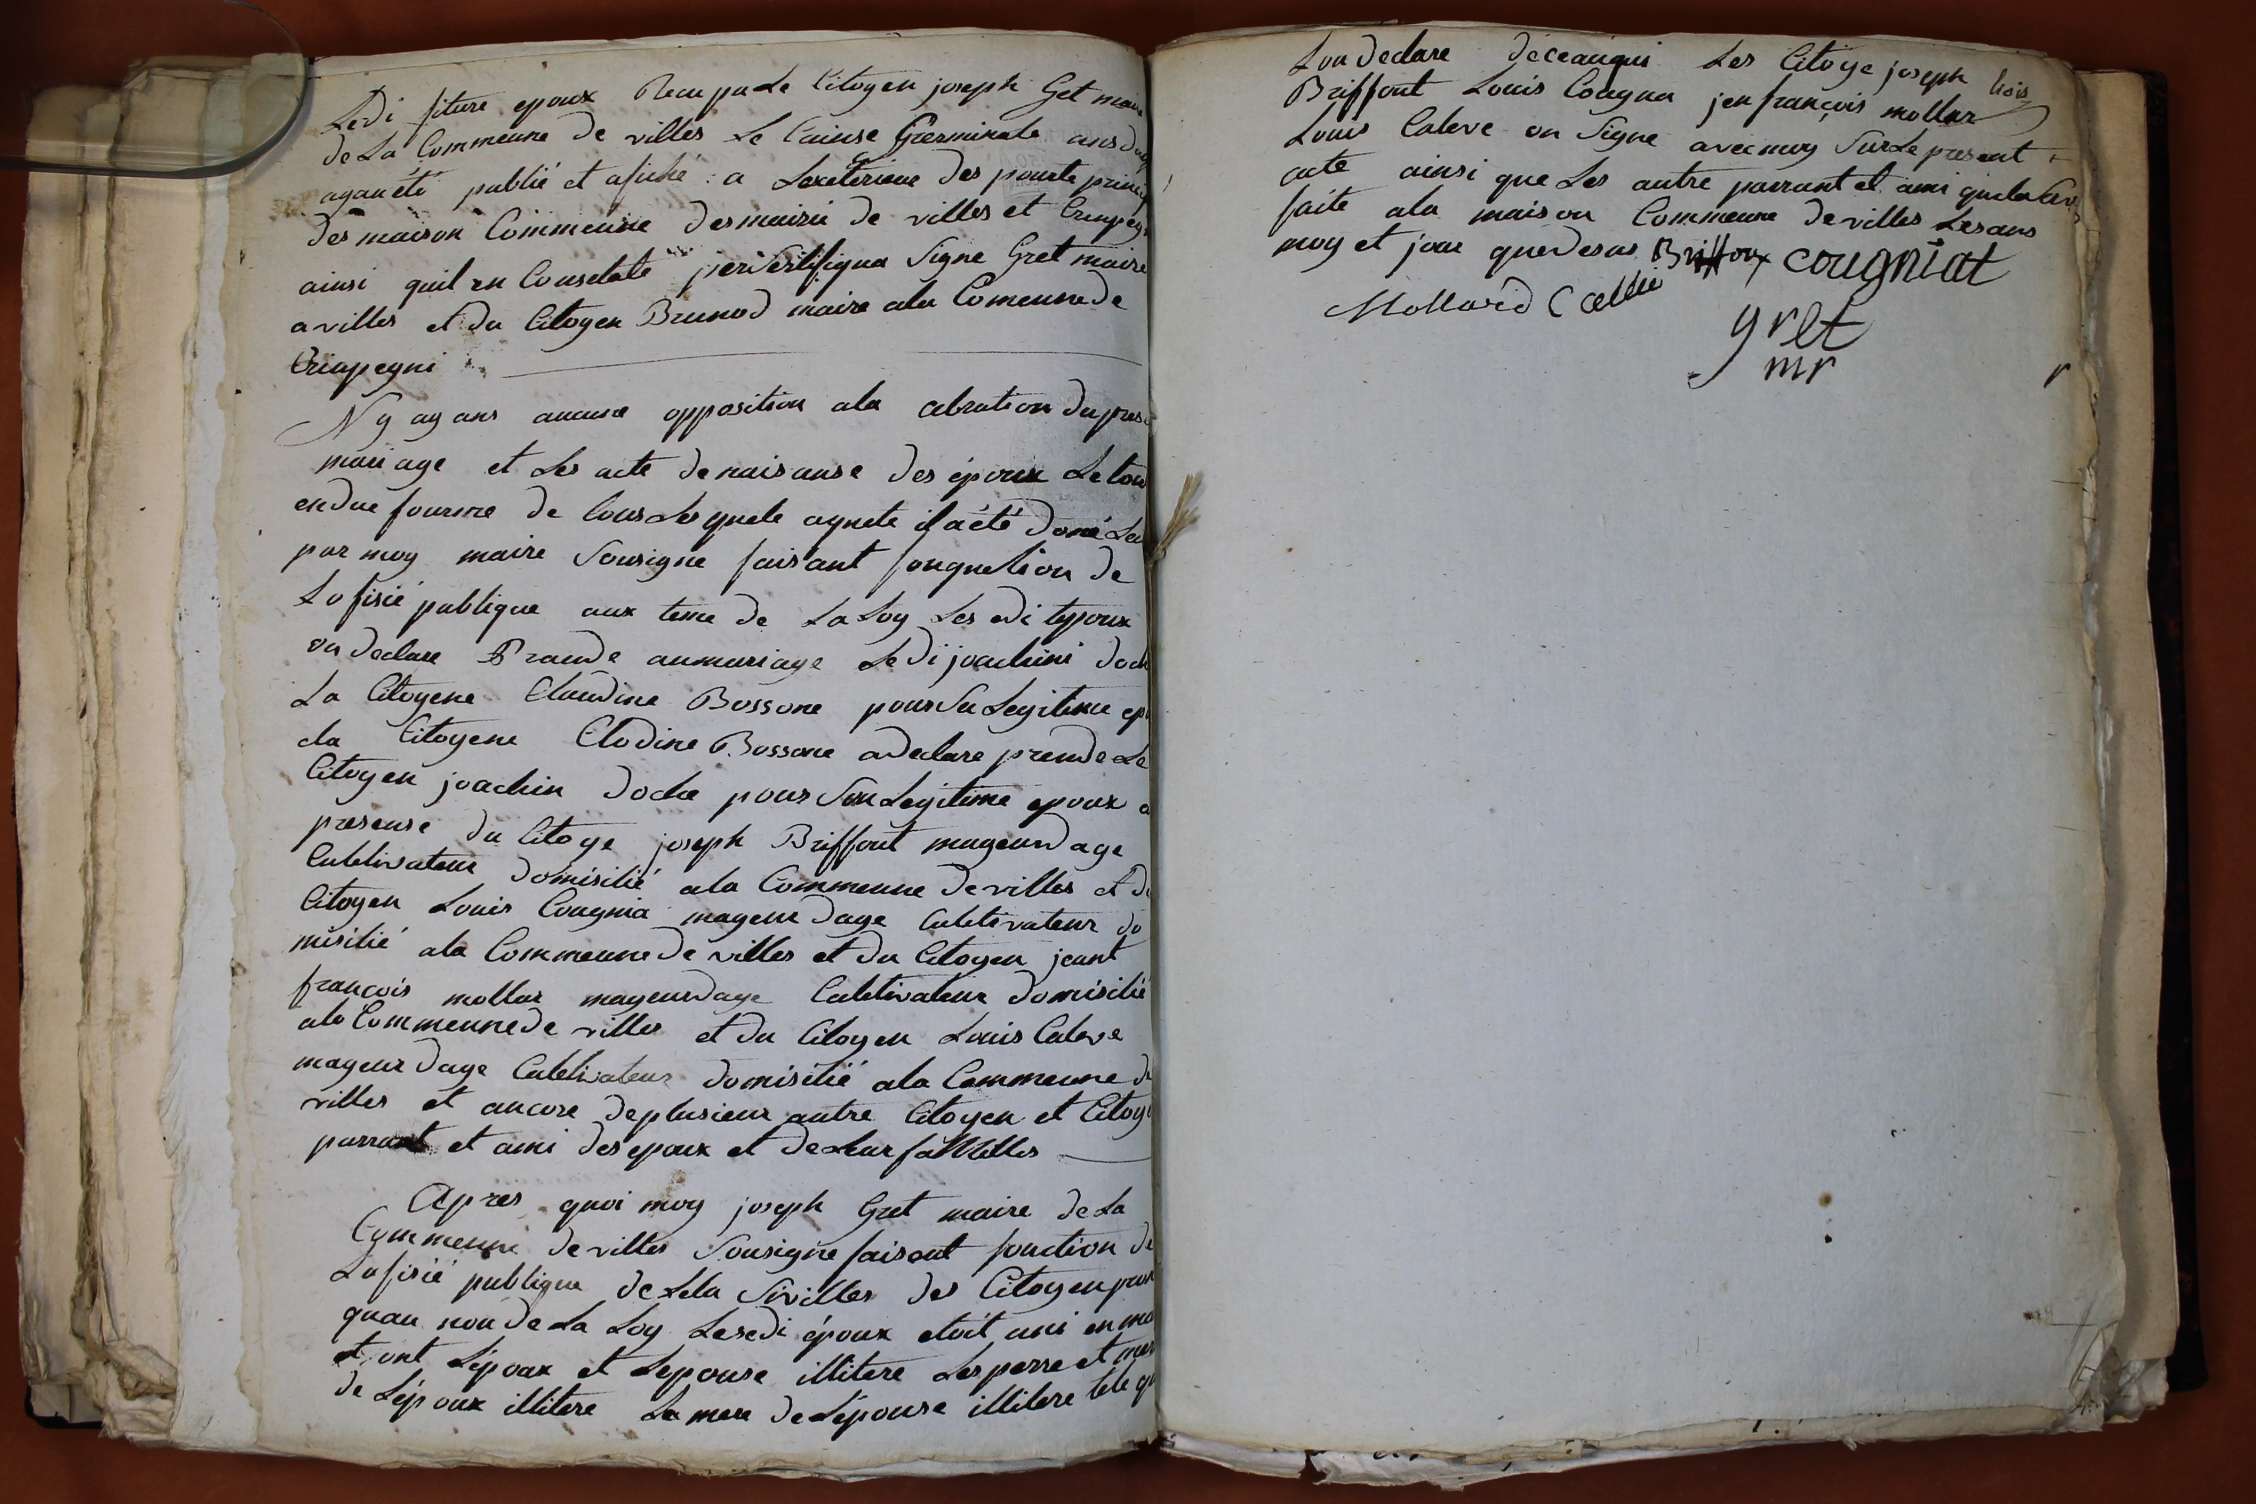 Ledi fiture epoux Recu pa Le Citoyen joseph Get maire
de La Commeune de villes Le Cainse Germinale ans
ayan été publié et afiché a Lexeterieur des pourte princi
des maison Commeune des mairie de villes et Creupegni
ainsi quil en Conselate Signe Gret maire
a villes et du Citoyen Brunod maire ala Comeune de
Creapegni
N y ay ans aucune opposition ala celration du pres
mariage et Les acte de naisanse des époux Le tou
endue fourme de tous Les quele aquete il a été doné Lec
par moy maire Sousigne faisant fonguetion de
Lofisié publique aux teme de La Loy Les edi tepoux
on declare Prande anmariage Ledi joachini doch
La Citoyene Claudine Bossone pour Sa Legitime ep
ela Citoyene Clodine Bossone a declare prende Le
Citoyen joachin doche pour Son Legitime epoux a
presense du Citoye joseph Briffout mageur dage
Culetivateur domisilié ala Commeune de villes et du
Citoyen Louis Cougnia mageur dage Culetivateur do
misilié ala Commeune de villes et du Citoyen jeant
françois mollar mageurdage Culetivateur domisilié
ala Commeune de villes et du Citoyen Louis Caleve
mageur dage Culetivateur domisilié ala Commeune de
villes et ancore de plusieur autre Citoyen et Citoy
parrant et ami des epoux et de Leur familles
Apres quoi moy joseph Gret maire de La
Commeune de villes Sousigne faisent fonction de
Lofisié publique de Leta Sivilles des Citoyen
quau non de La Loy Lesedi époux etoit uni en ma
et ont Lépoux et Lepouse illitere Les perre et mer
de Lépoux illitere La mere de Lépouse illitere tele qu
Lon declare déceauqui Les Citoye joseph
Briffout Louis Cougna jen françois mollar
Louis Caleve on Signe avec moy Sur Le present
acte ainsi que Les autre parrant et ami
faite ala maison Commeune de villes Les ans
moy et jour que desus Briffoux cougniat
Mollard Callie
gret
mr